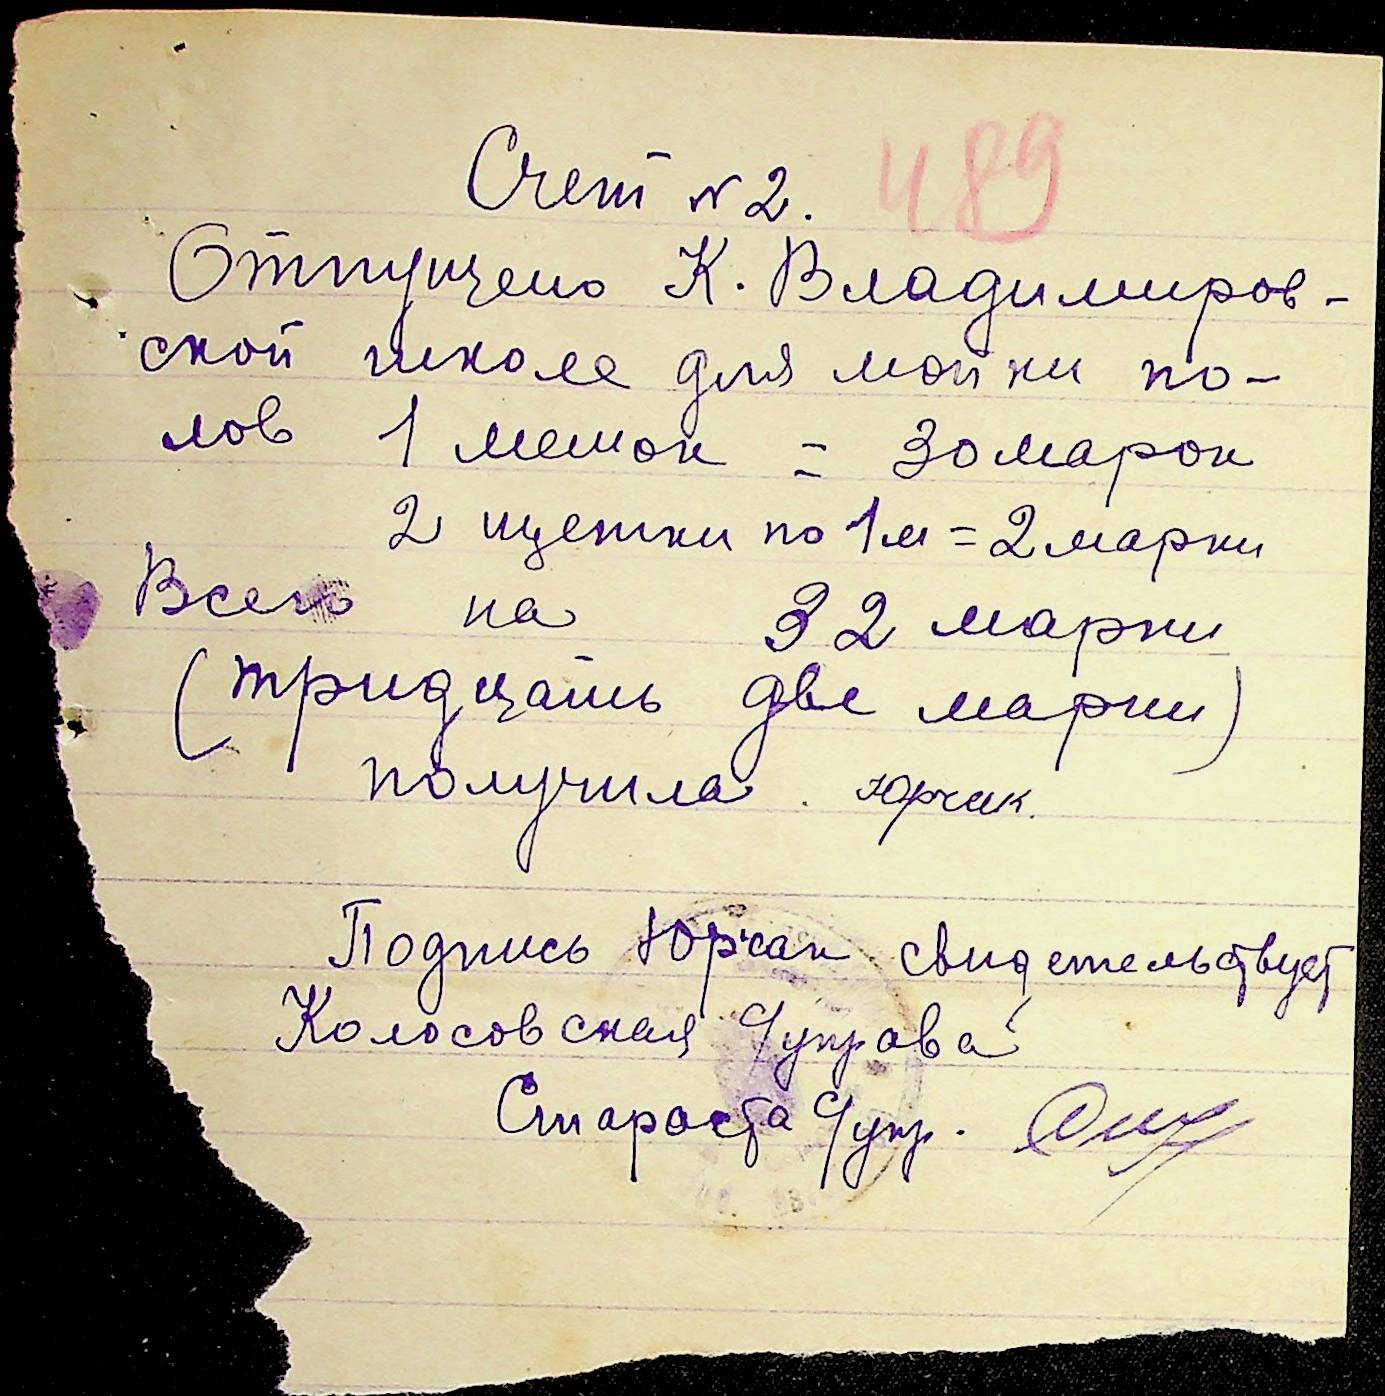 Счет № 2. 489
Отпущено К. Владимиров-
ской школе для мойки по-
лов 1 мешок = 30 марок
2 щетки по 1 м = 2 марки
Всего на 32 марки
(тридцать две марки)
получила. Юрчак.
Подпись Юрчак свидетельствует
Колосовская Супрова
Староста